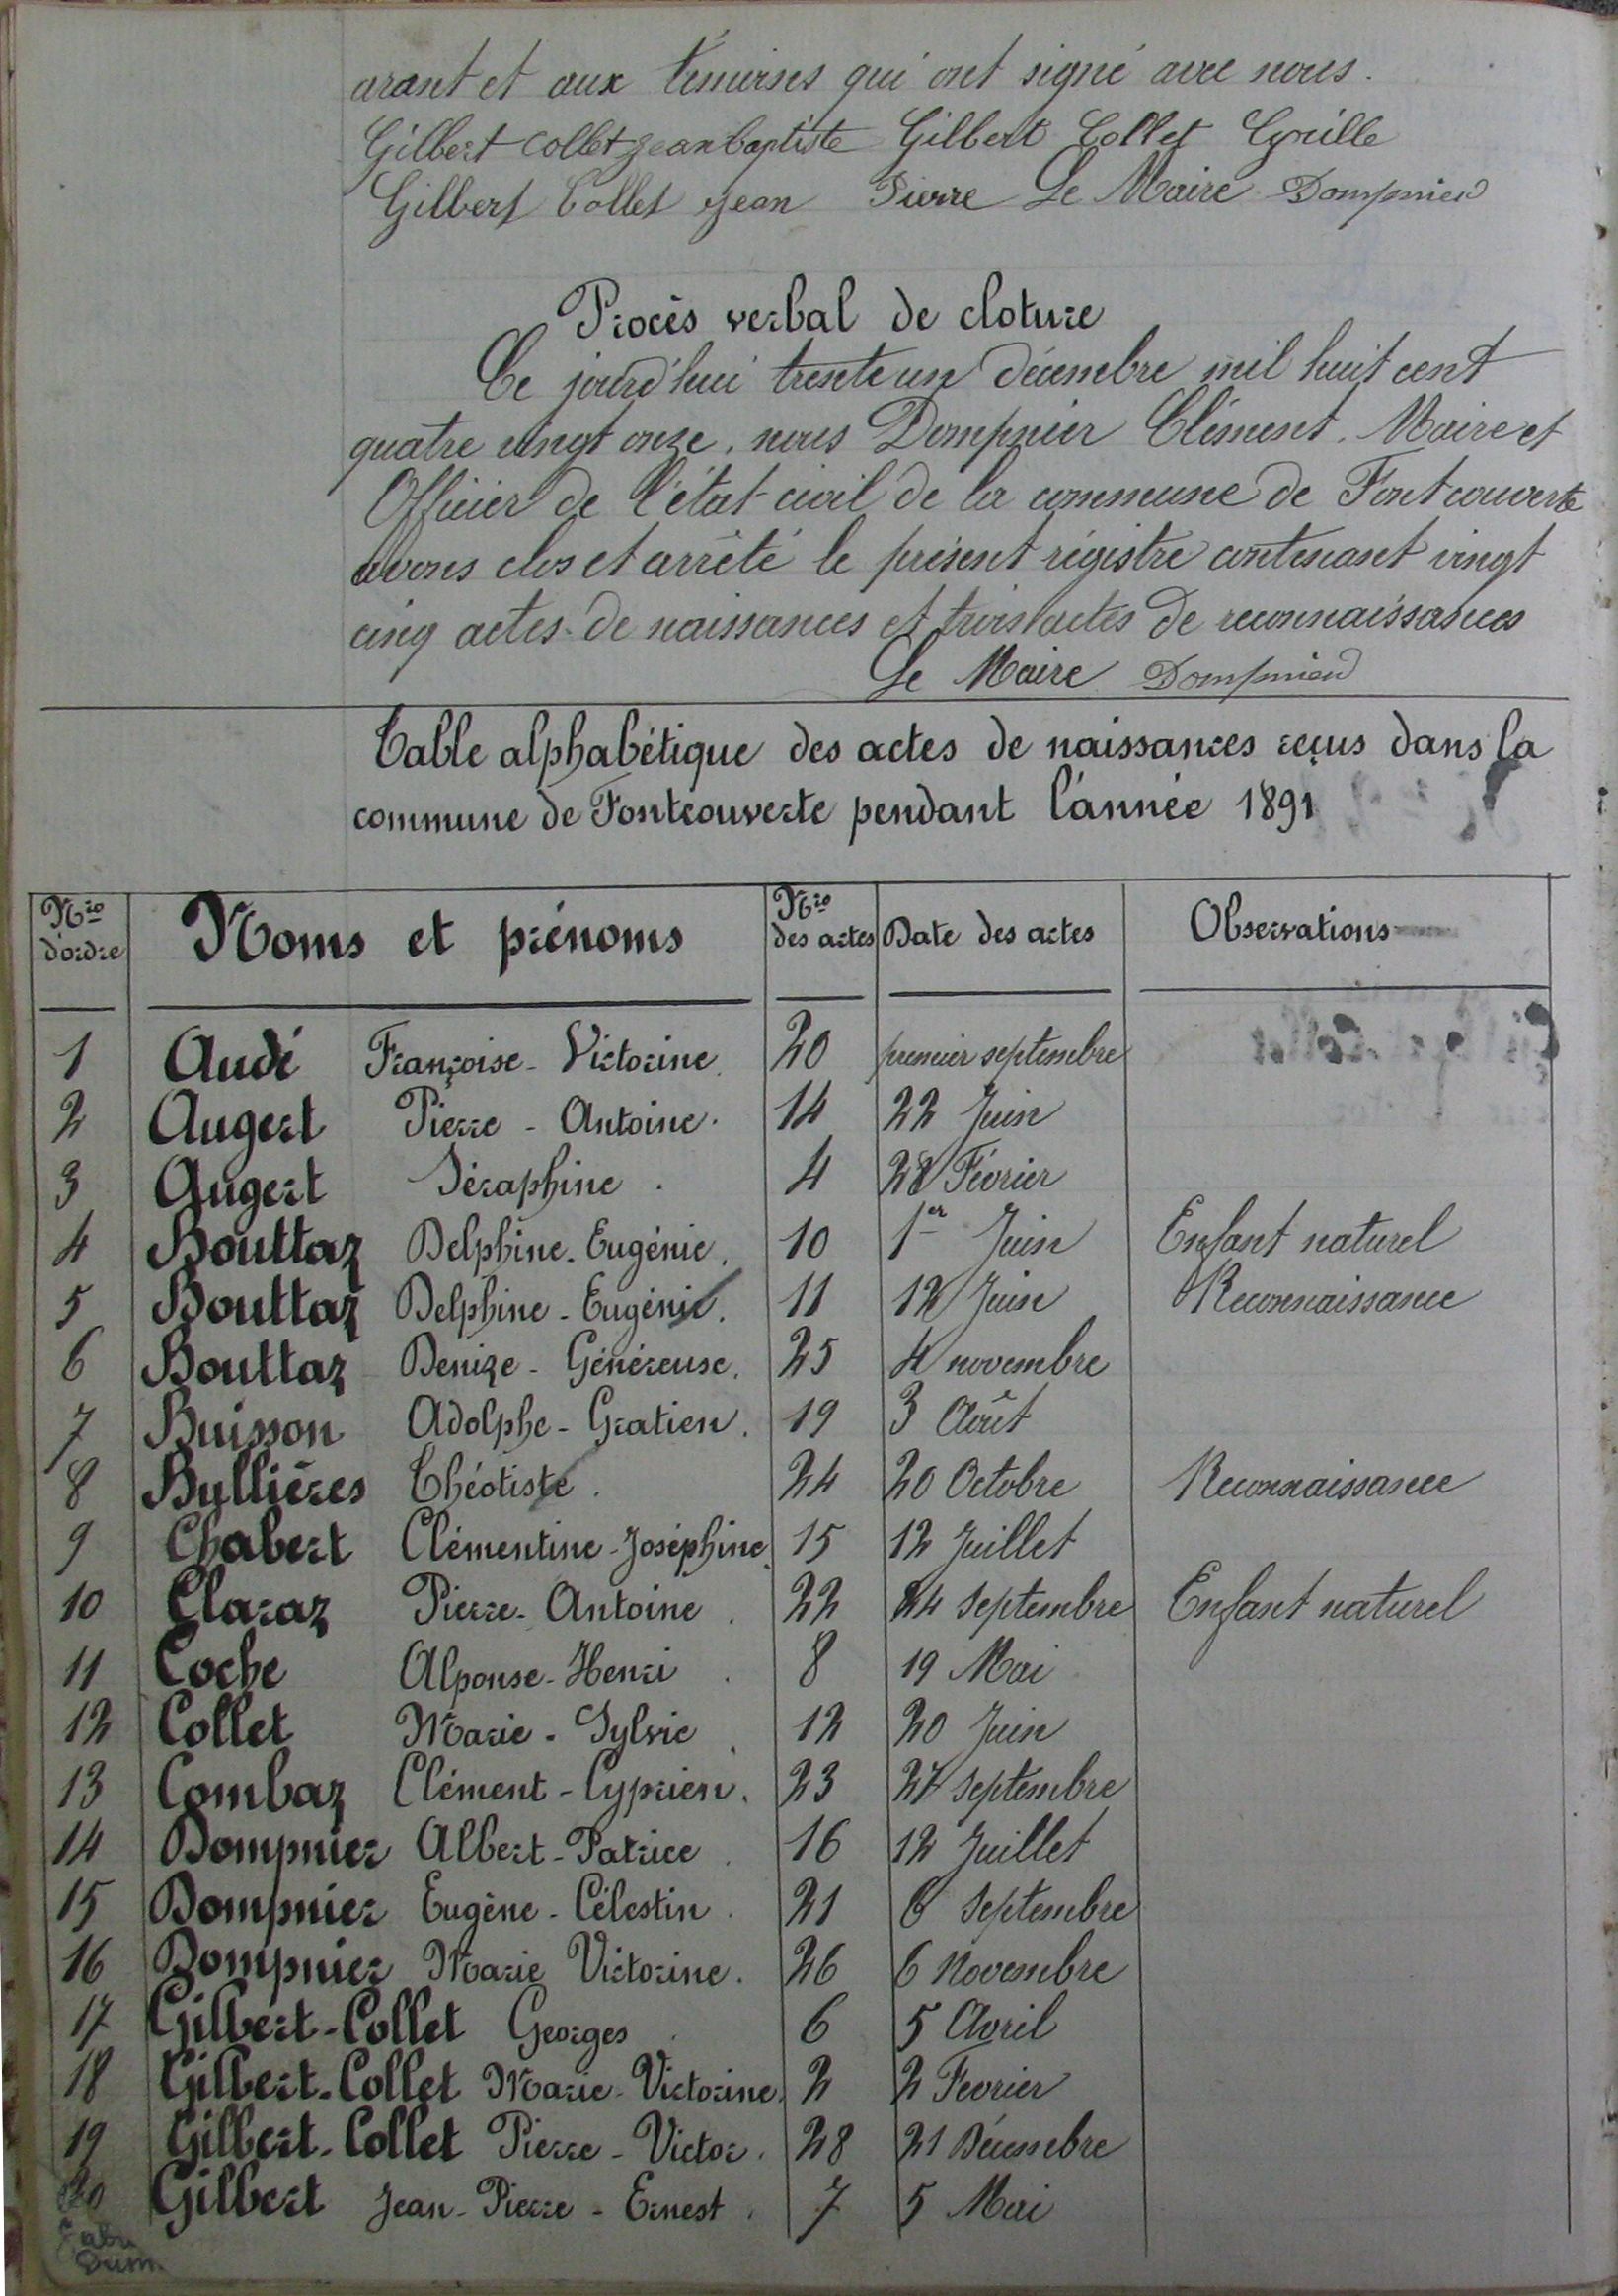 arant et aux témoins qui ont signé avec nous.
Gilbert Collet jean baptiste Gilbert Collet Cyrille
Gilbert Collet Jean Pierre Le Maire Dompnier
Procès verbal de cloture
Ce jourd'hui trente un décembre mil huit cent
quatre vingt onze, nous Dompnier Clément, Maire et
Officier de l'état civil de la commune de Fontcouverte
avons clos et arrêté le présent régistre contenant vingt
cinq actes de naissances et trois actes de reconnaissances
Le Maire Dompnier
Table alphabétique des actes de naissances reçus dans la
commune de Fontcouverte pendant l'année 1891
Nro d'ordre Noms et prénoms Nro des actes Date des actes Observations
1 Audé Françoise - Victorine 20 premier septembre
2 Augert Pierre - Antoine. 14 22 Juin
3 Augert Séraphine . 4 28 Février
4 Bouttaz Delphine - Eugénie. 10 1er Juin Enfant naturel
5 Bouttaz Delphine - Eugénie. 11 12 Juin Reconnaissance
6 Bouttaz Denize - Généreuse. 25 4 novembre
7 Buisson Adolphe - Gratien. 19 3 Août
8 Bullières Théotiste . 24 20 Octobre Reconnaissance
9 Chabert Clémentine - Joséphine 15 12 Juillet
10 Claraz Pierre - Antoine . 22 24 Septembre Enfant naturel
11 Coche Alponse - Henri . 8 19 Mai
12 Collet Marie - Sylvie . 12 20 Juin
13 Combaz Clément - Cyprien. 23 27 Septembre
14 Dompnier Albert - Patrice . 16 12 Juillet
15 Dompnier Eugène - Célestin . 21 6 Septembre
16 Dompnier Marie Victorine. 26 6 Novembre
17 Gilbert - Collet Georges . 6 5 Avril
18 Gilbert - Collet Marie - Victorine. 2 2 Fevrier
19 Gilbert - Collet Pierre - Victor. 28 21 Décembre
20 Gilbert Jean - Pierre - Ernest . 7 5 Mai